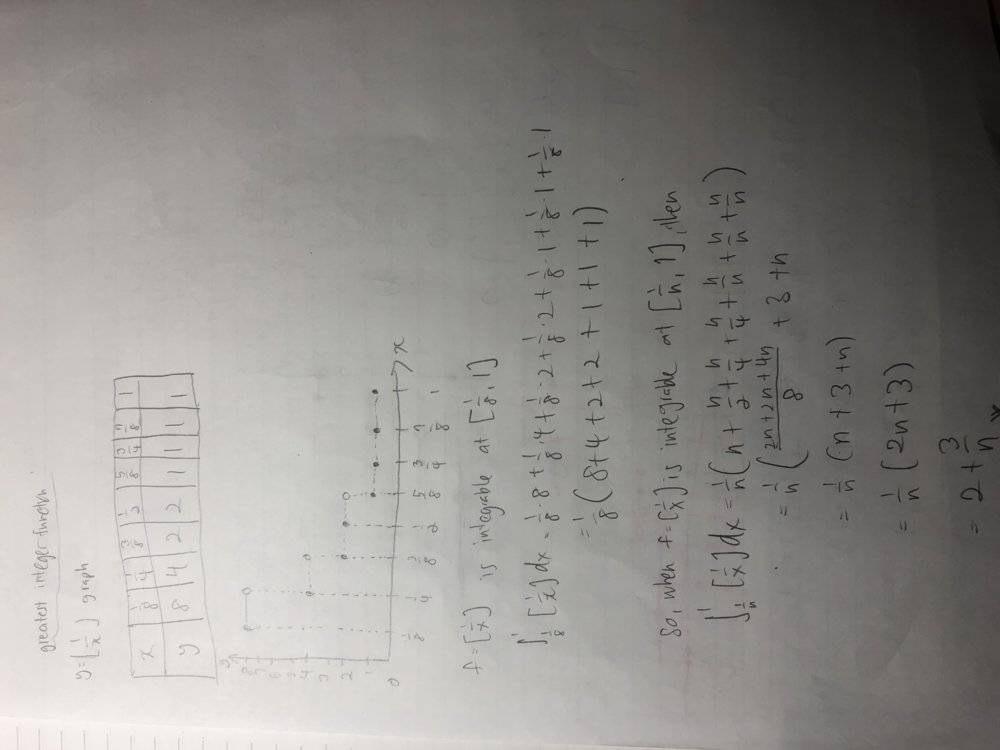 greatest integer function
y=[1/x] graph
x | 1/8 | 1/4 | 3/8 | 1/2 | 5/8 | 3/4 | 7/8 | 1
y | 8 | 4 | 2 | 2 | 1 | 1 | 1 | 1
y
8
7
6
5
4
3
2
1
0 1/8 1/4 3/8 1/2 5/8 3/4 7/8 1 x
f=[1/x] is integrable at [1/8, 1]
∫_{1/8}^{1} [1/x] dx = 1/8·8 + 1/8·4 + 1/8·2 + 1/8·2 + 1/8·1 + 1/8·1 + 1/8·1
= 1/8 (8+4+2+2+1+1+1)
So, when f=[1/x] is integrable at [1/n, 1], then
∫_{1/n}^{1} [1/x] dx = 1/n (n + n/2 + n/4 + n/4 + n/n + n/n + n/n)
= 1/n ((2n+2n+4n)/8 + 3 + n
= 1/n (n+3+n)
= 1/n (2n+3)
= 2 + 3/n